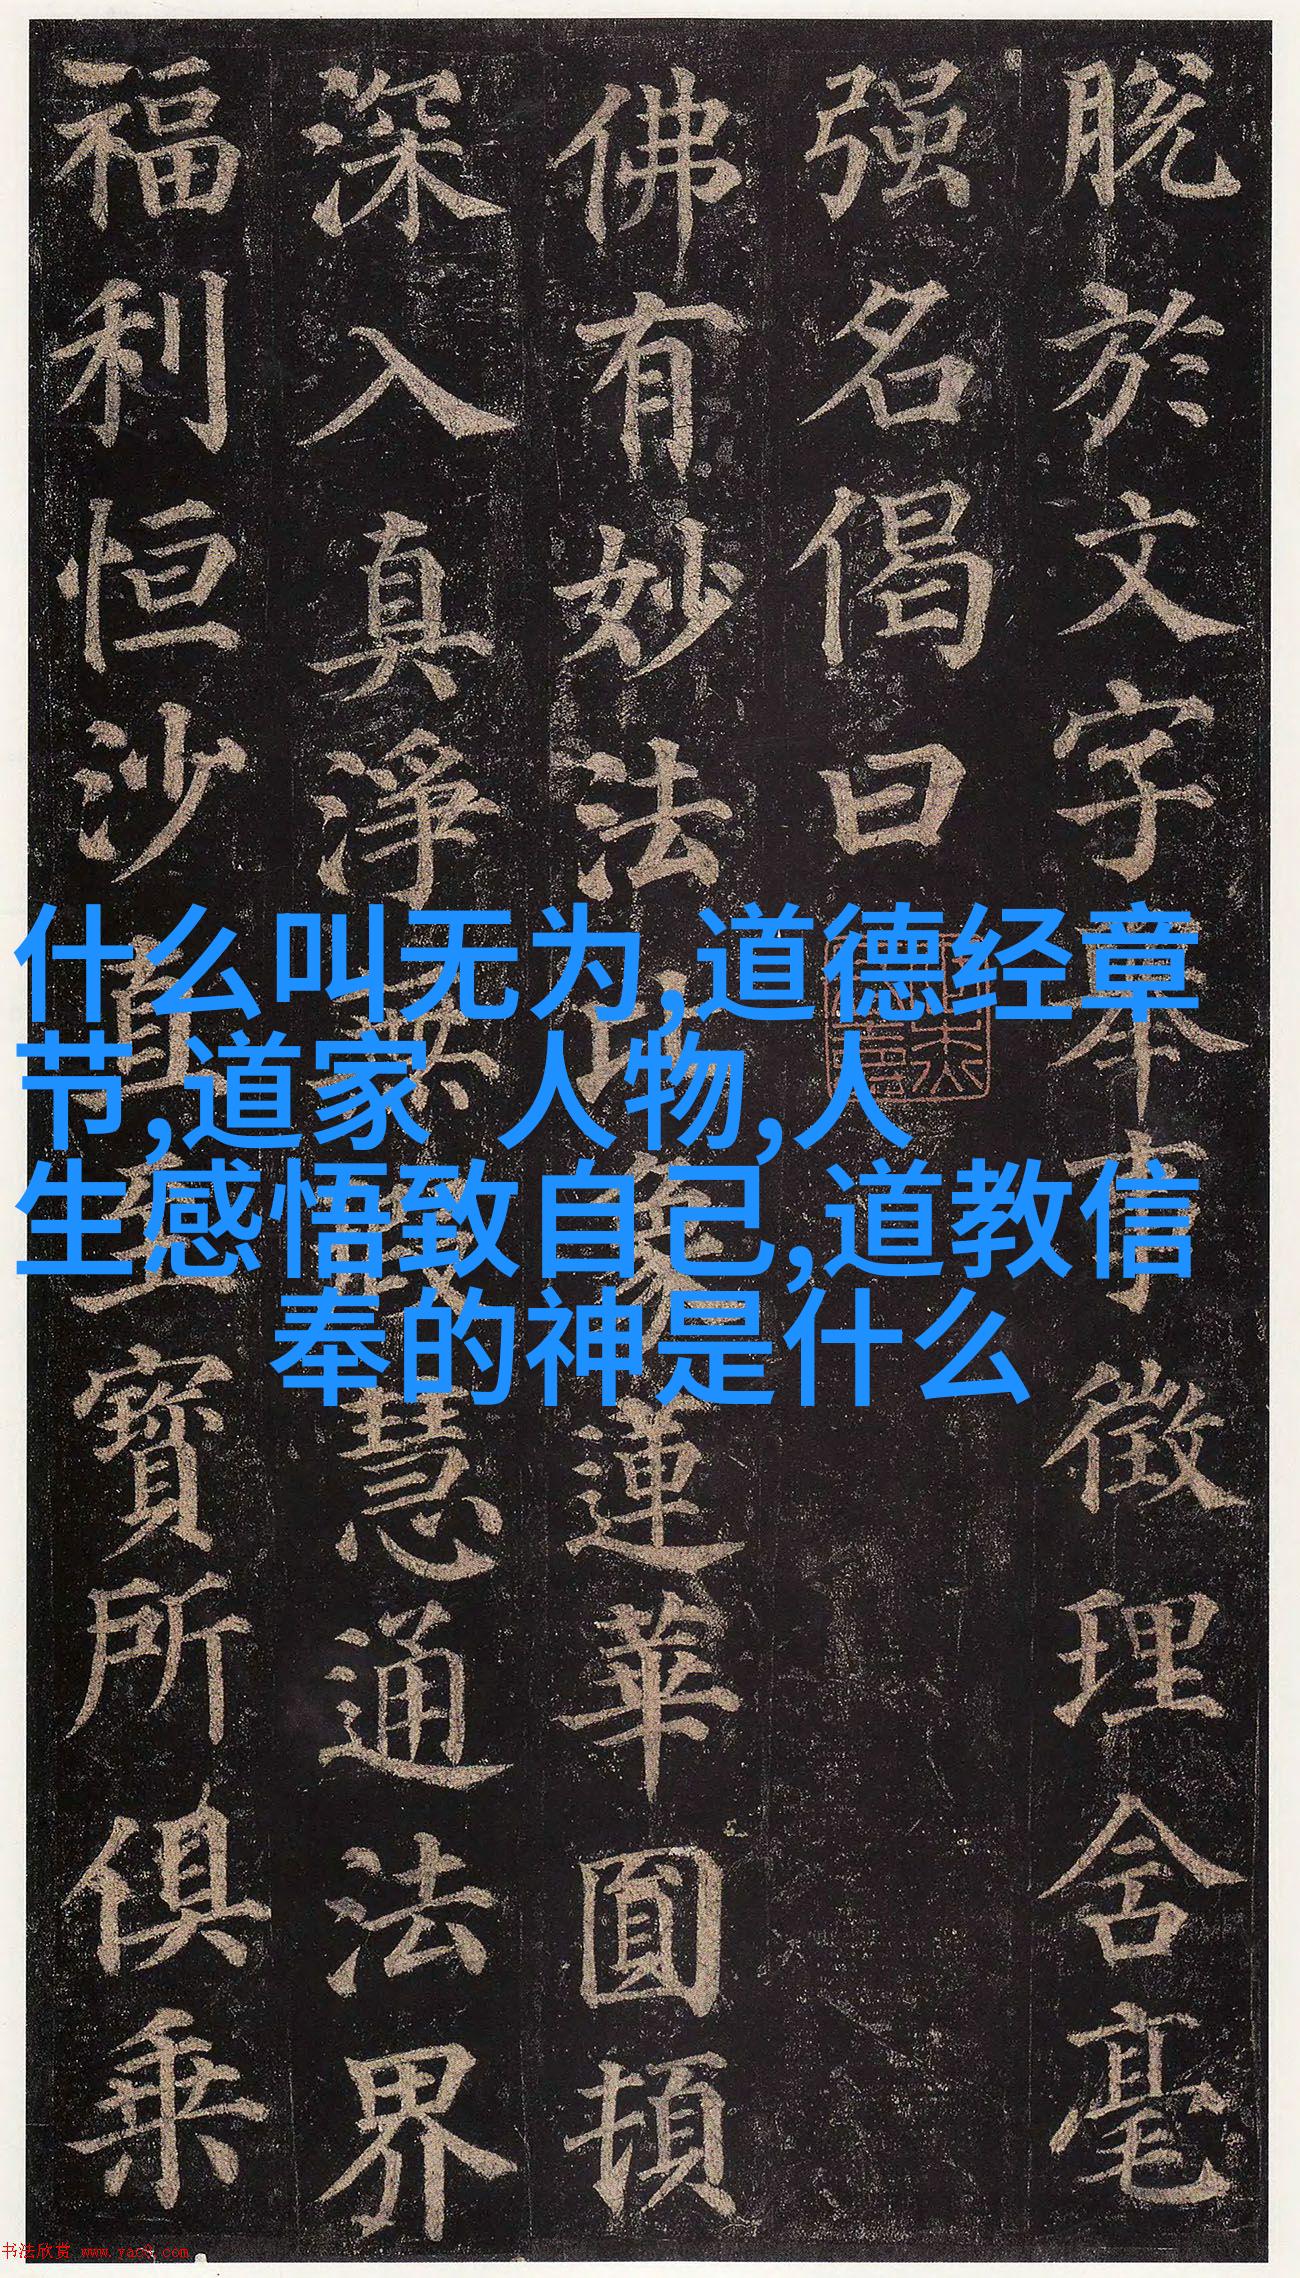 脱於文字舉事徵理含毫
强名偈曰
佛有妙法比象蓮華圓頓
深入真淨無我慧通法界
福利恒沙直至寶所俱乘
什么叫无为,道德经章
节,道家 人物,人
生感悟致自己,道教信
奉的神是什么
书法欣赏 www.yac8.com